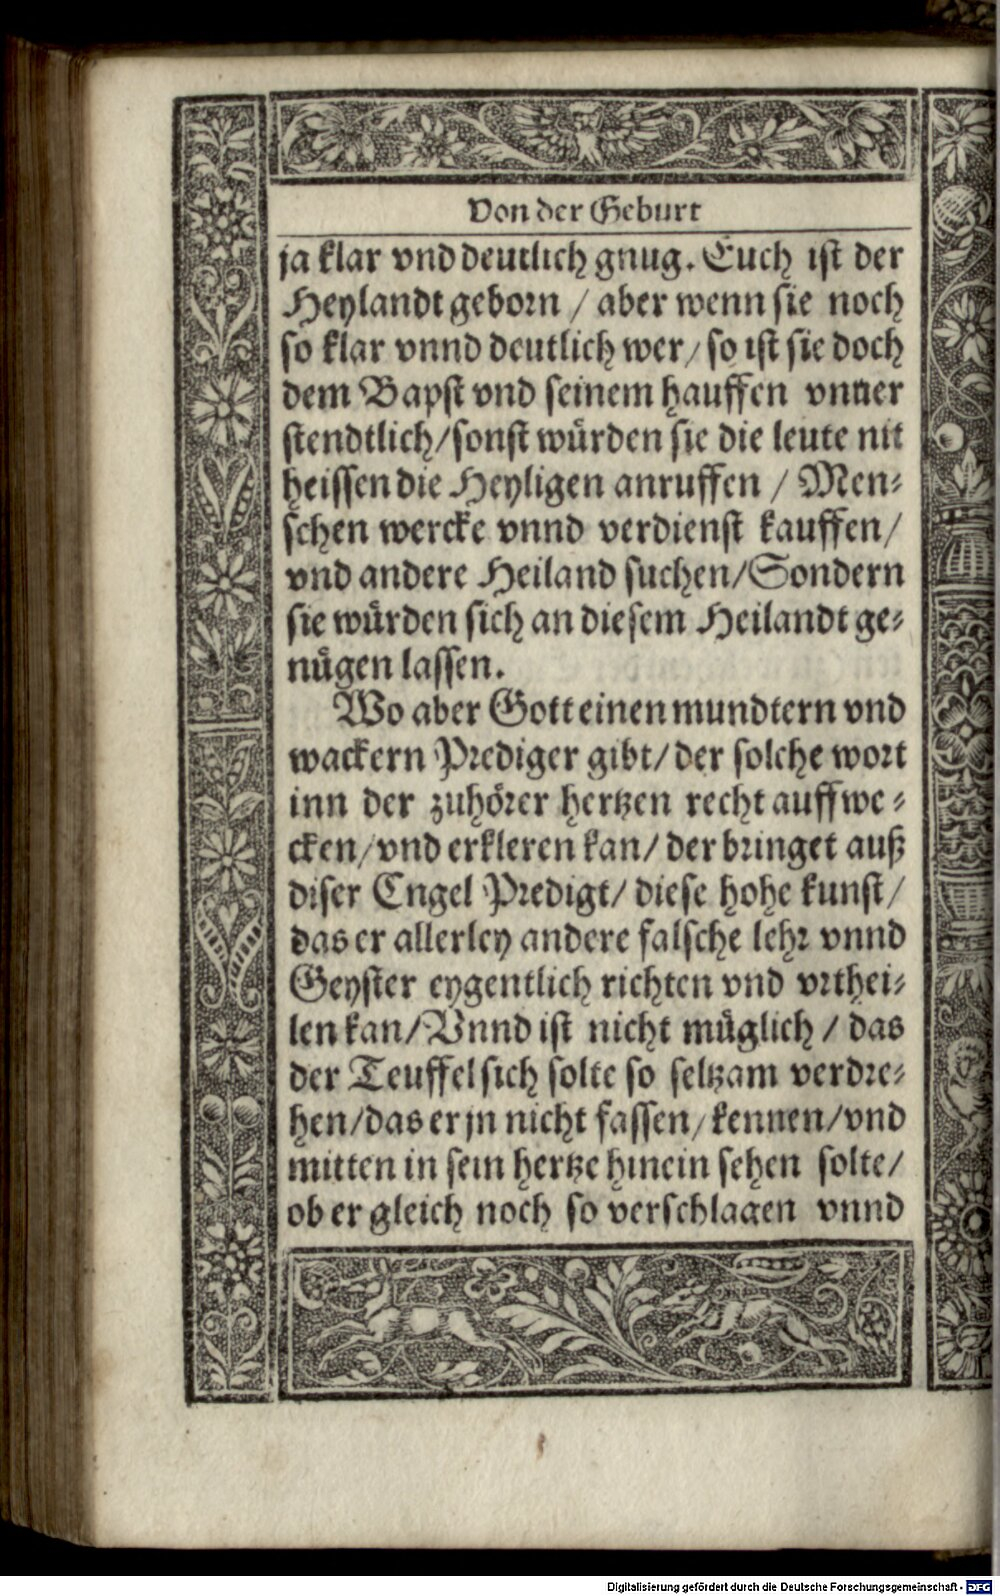 Von der Geburt
ja klar vnd deutlich gnug. Euch ist der
Heylandt geborn / aber wenn sie noch
so klar vnnd deutlich wer / so ist sie doch
dem Bapst vnd seinem hauffen vnuer
stendtlich / sonst würden sie die leute nit
heissen die Heyligen anruffen / Men⸗
schen wercke vnnd verdienst kauffen /
vnd andere Heiland suchen / Sondern
sie würden sich an diesem Heilandt ge⸗
nügen lassen.
Wo aber Gott einen mundtern vnd
wackern Prediger gibt / der solche wort
inn der zuhörer hertzen recht auffwe⸗
cken / vnd erkleren kan / der bringet auß
diser Engel Predigt / diese hohe kunst /
das er allerley andere falsche lehr vnnd
Geyster eygentlich richten vnd vrthei⸗
len kan / Vnnd ist nicht müglich / das
der Teuffel sich solte so seltzam verdre⸗
hen / das er jn nicht fassen / kennen / vnd
mitten in sein hertze hinein sehen solte /
ob er gleich noch so verschlagen vnnd
Digitalisierung gefördert durch die Deutsche Forschungsgemeinschaft - DFG